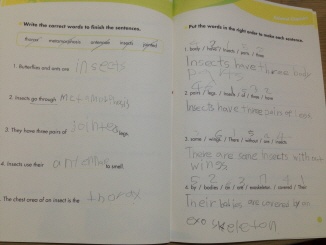 Write the correct words to finish the sentences.
thorax metamorphosis antennae insects jointed
1. Butterflies and ants are insects
2. Insects go through metamorphosis
3. They have three pairs of jointed legs.
4. Insects use their to smell.
5. The chest area of an insect is the thorax
Put the words in the right order to make each sentence.
1. body / have / Insects / parts / three
Insects have three body
parts
2. pairs / legs / Insects / of / three / have
Insects have three
3. some / wings / There / without / are / insects
There are some insects without
wings
4. by / bodies / an / are / exoskeleton / covered / Their
Their bodies are covered by an
exoskeleton